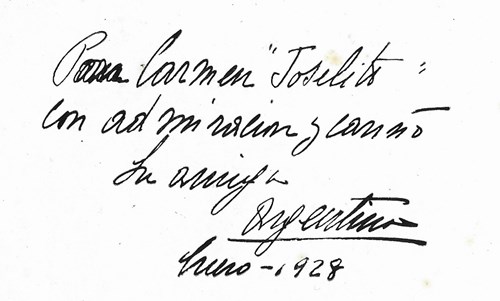 Para Carmen "Joselito"
con admiracion y cariño
Su amiga
Argentina
Enero - 1928